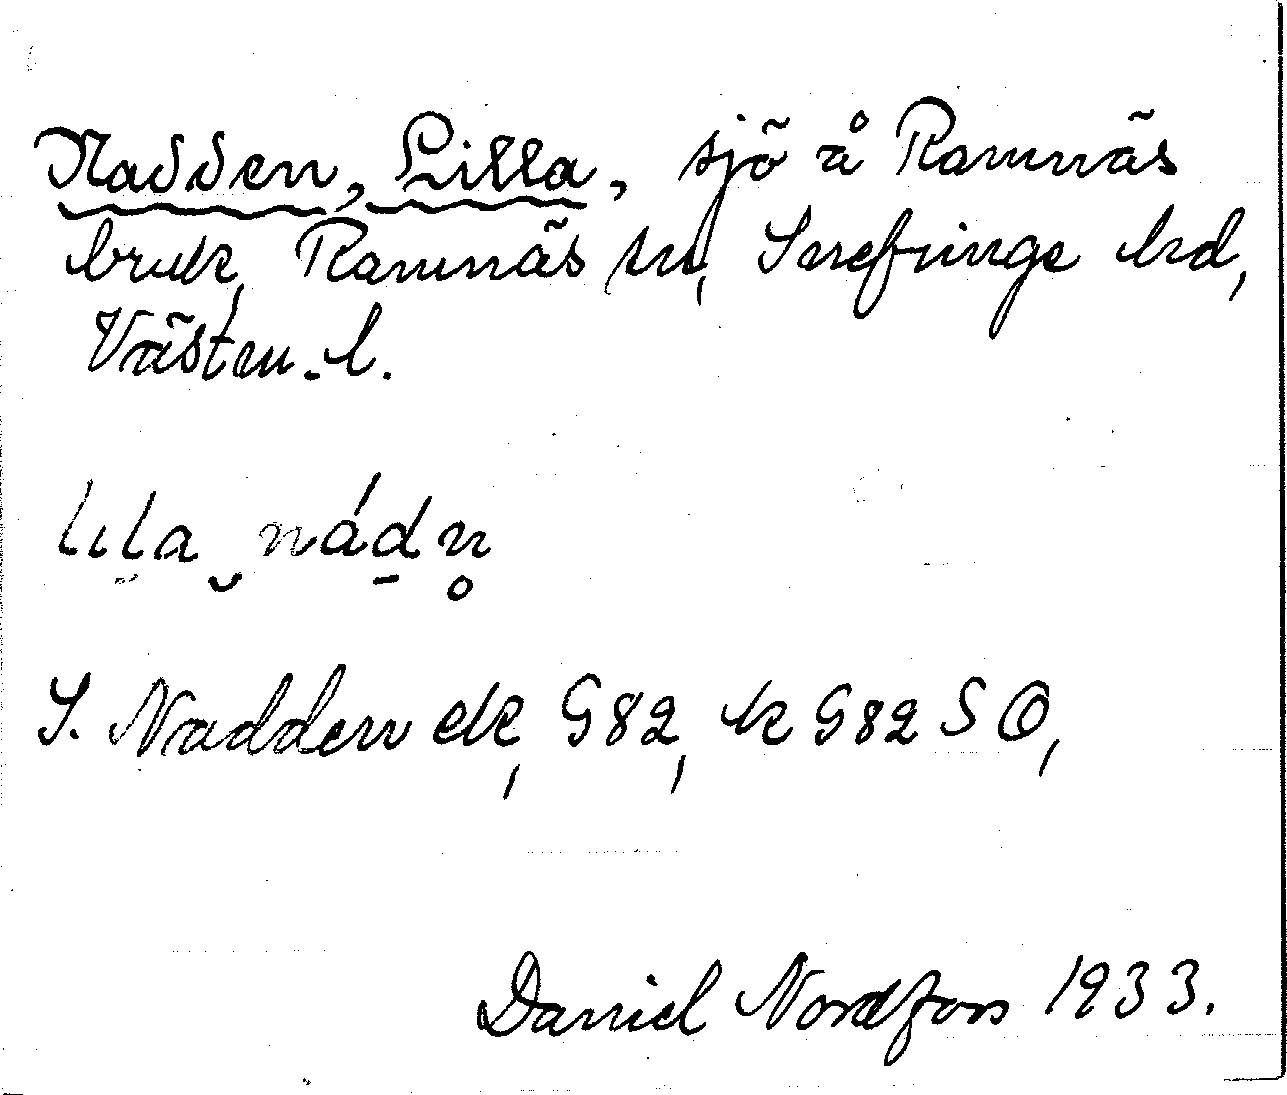 Nadden, Lilla, sjö å Ramnäs
bruk, Ramnäs sn, Snefringe hd,
Västm. l.
lịla ̮ nád̠n̥
S. Nadden ek, G82, k G82 SO,
Daniel Nordfors 1933.